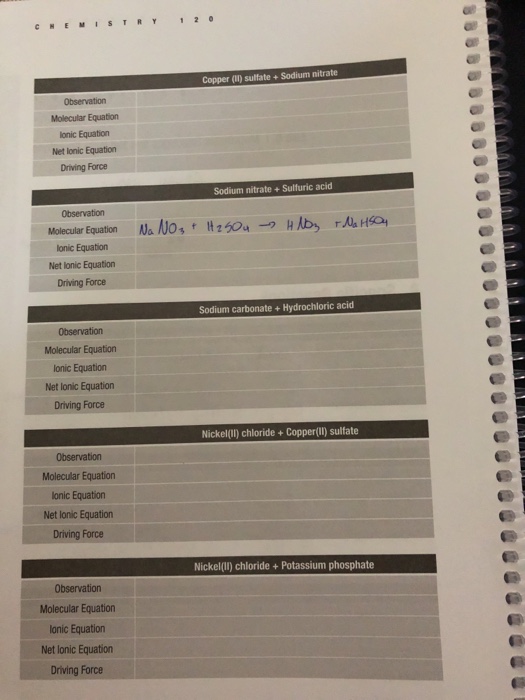 CHEMISTRY 120
Copper (II) sulfate + Sodium nitrate
Observation
Molecular Equation
Ionic Equation
Net Ionic Equation
Driving Force
Sodium nitrate + Sulfuric acid
Observation
Molecular Equation NaNO3 + H2SO4 → HNO3 + NaHSO4
Ionic Equation
Net Ionic Equation
Driving Force
Sodium carbonate + Hydrochloric acid
Observation
Molecular Equation
Ionic Equation
Net Ionic Equation
Driving Force
Nickel(II) chloride + Copper(II) sulfate
Observation
Molecular Equation
Ionic Equation
Net Ionic Equation
Driving Force
Nickel(II) chloride + Potassium phosphate
Observation
Molecular Equation
Ionic Equation
Net Ionic Equation
Driving Force